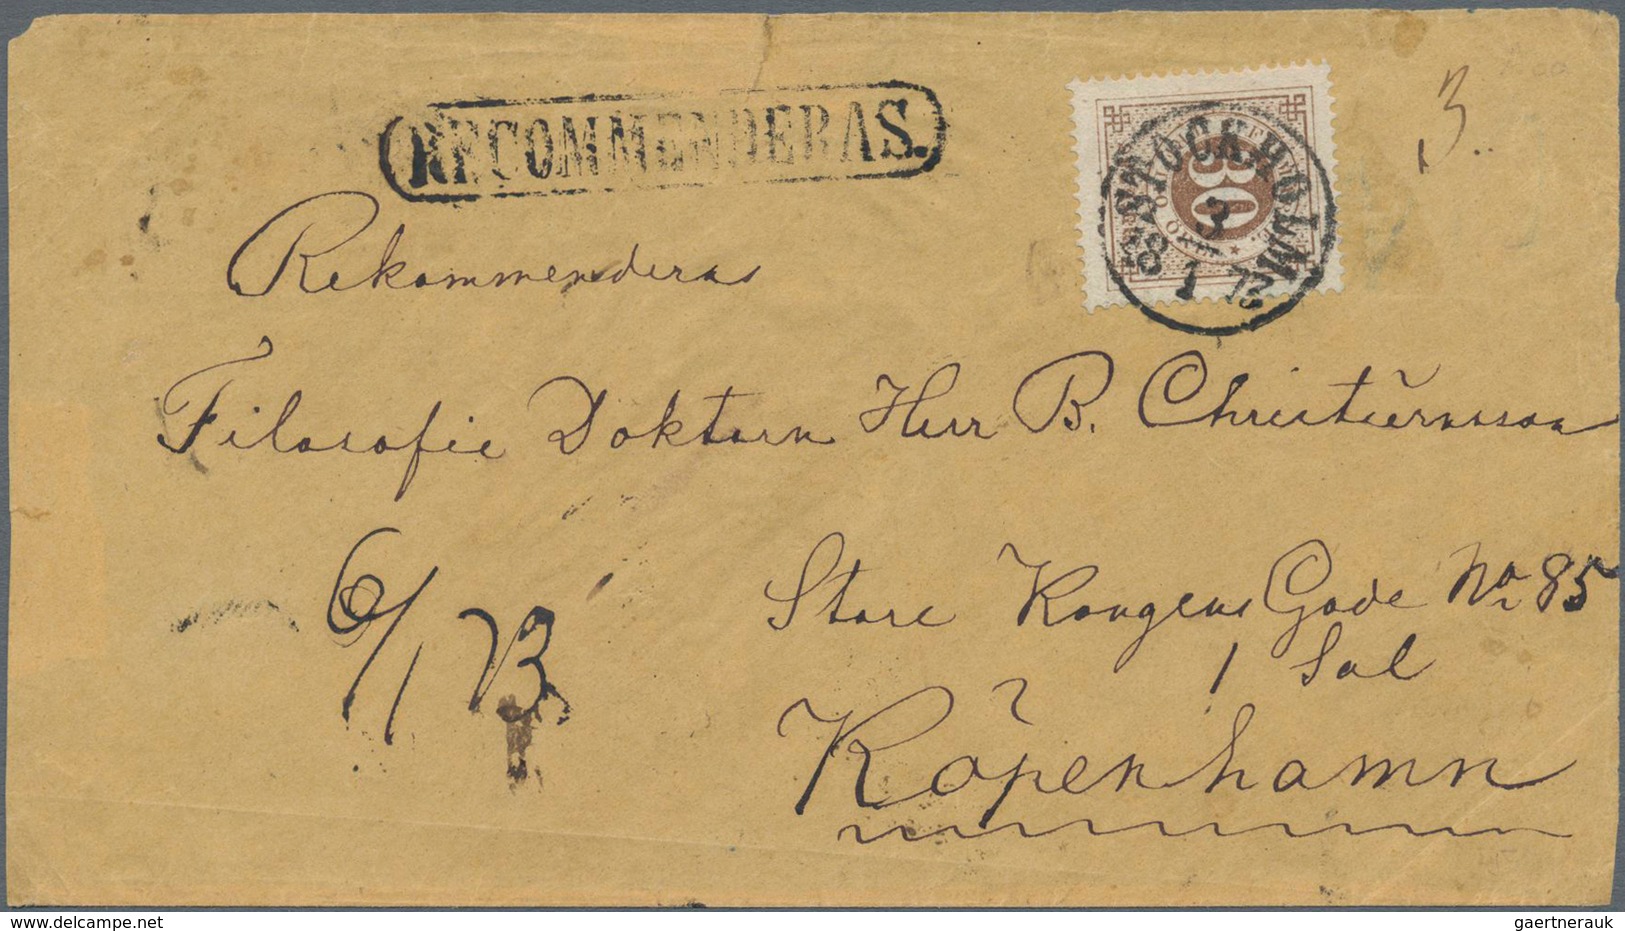 RECOMMENDERAS.
STOCKHOLM
3
18 1 73
30
3.
Rekommenderas
Filosofie Doktorn Herr B. Christiernsson
Store Kongens Gade No 85
1 Sal
Köpenhamn
6/1 73
www.delcampe.net
gaertnerauk